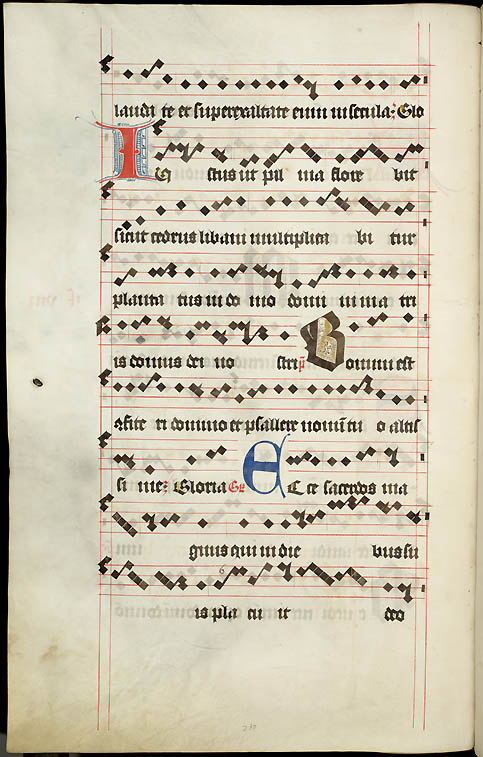 laudate et superexaltate eum in secula: Glo
Iustus ut pal ma flore bit
sicut cedrus libani multiplica bi tur
planta tus in do mo domi ni in a tri
is domus dei no stri Bonum est
confite ri domino et psallere nomini tu o altis
si me: Gloria Gr Ecce sacerdos ma
gnus qui in die bus su
is pla cu it deo